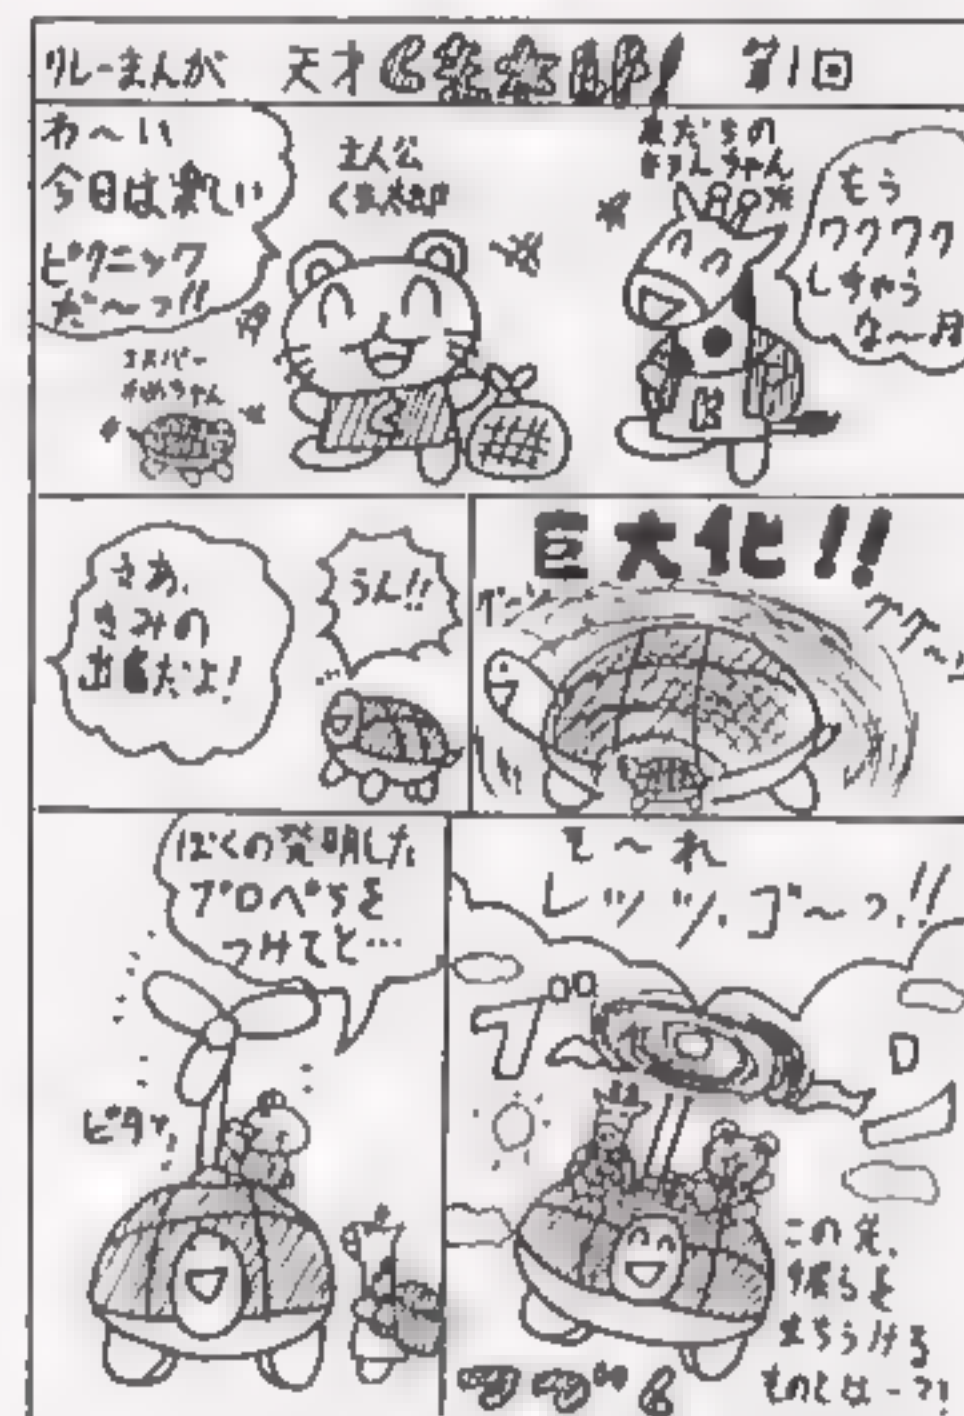 リレーまんが 天才くま太郎! 第1回
わ〜い
今日は楽しい
ピクニック
だ〜っ!!
主人公
くま太郎
友だちの
キリンちゃん
もう
ワクワク
しちゃう
な〜♬
エスパー
かめちゃん
さあ、
きみの
出番だよ!
うん!!
巨大化!!
グーン
ググーン
ぼくの発明した
プロペラを
つけてと…
ピタッ
そ〜れ
レッツ、ゴ〜っ!!
ブロロ
この先、
彼らを
まちうける
ものとは-?!
つづく